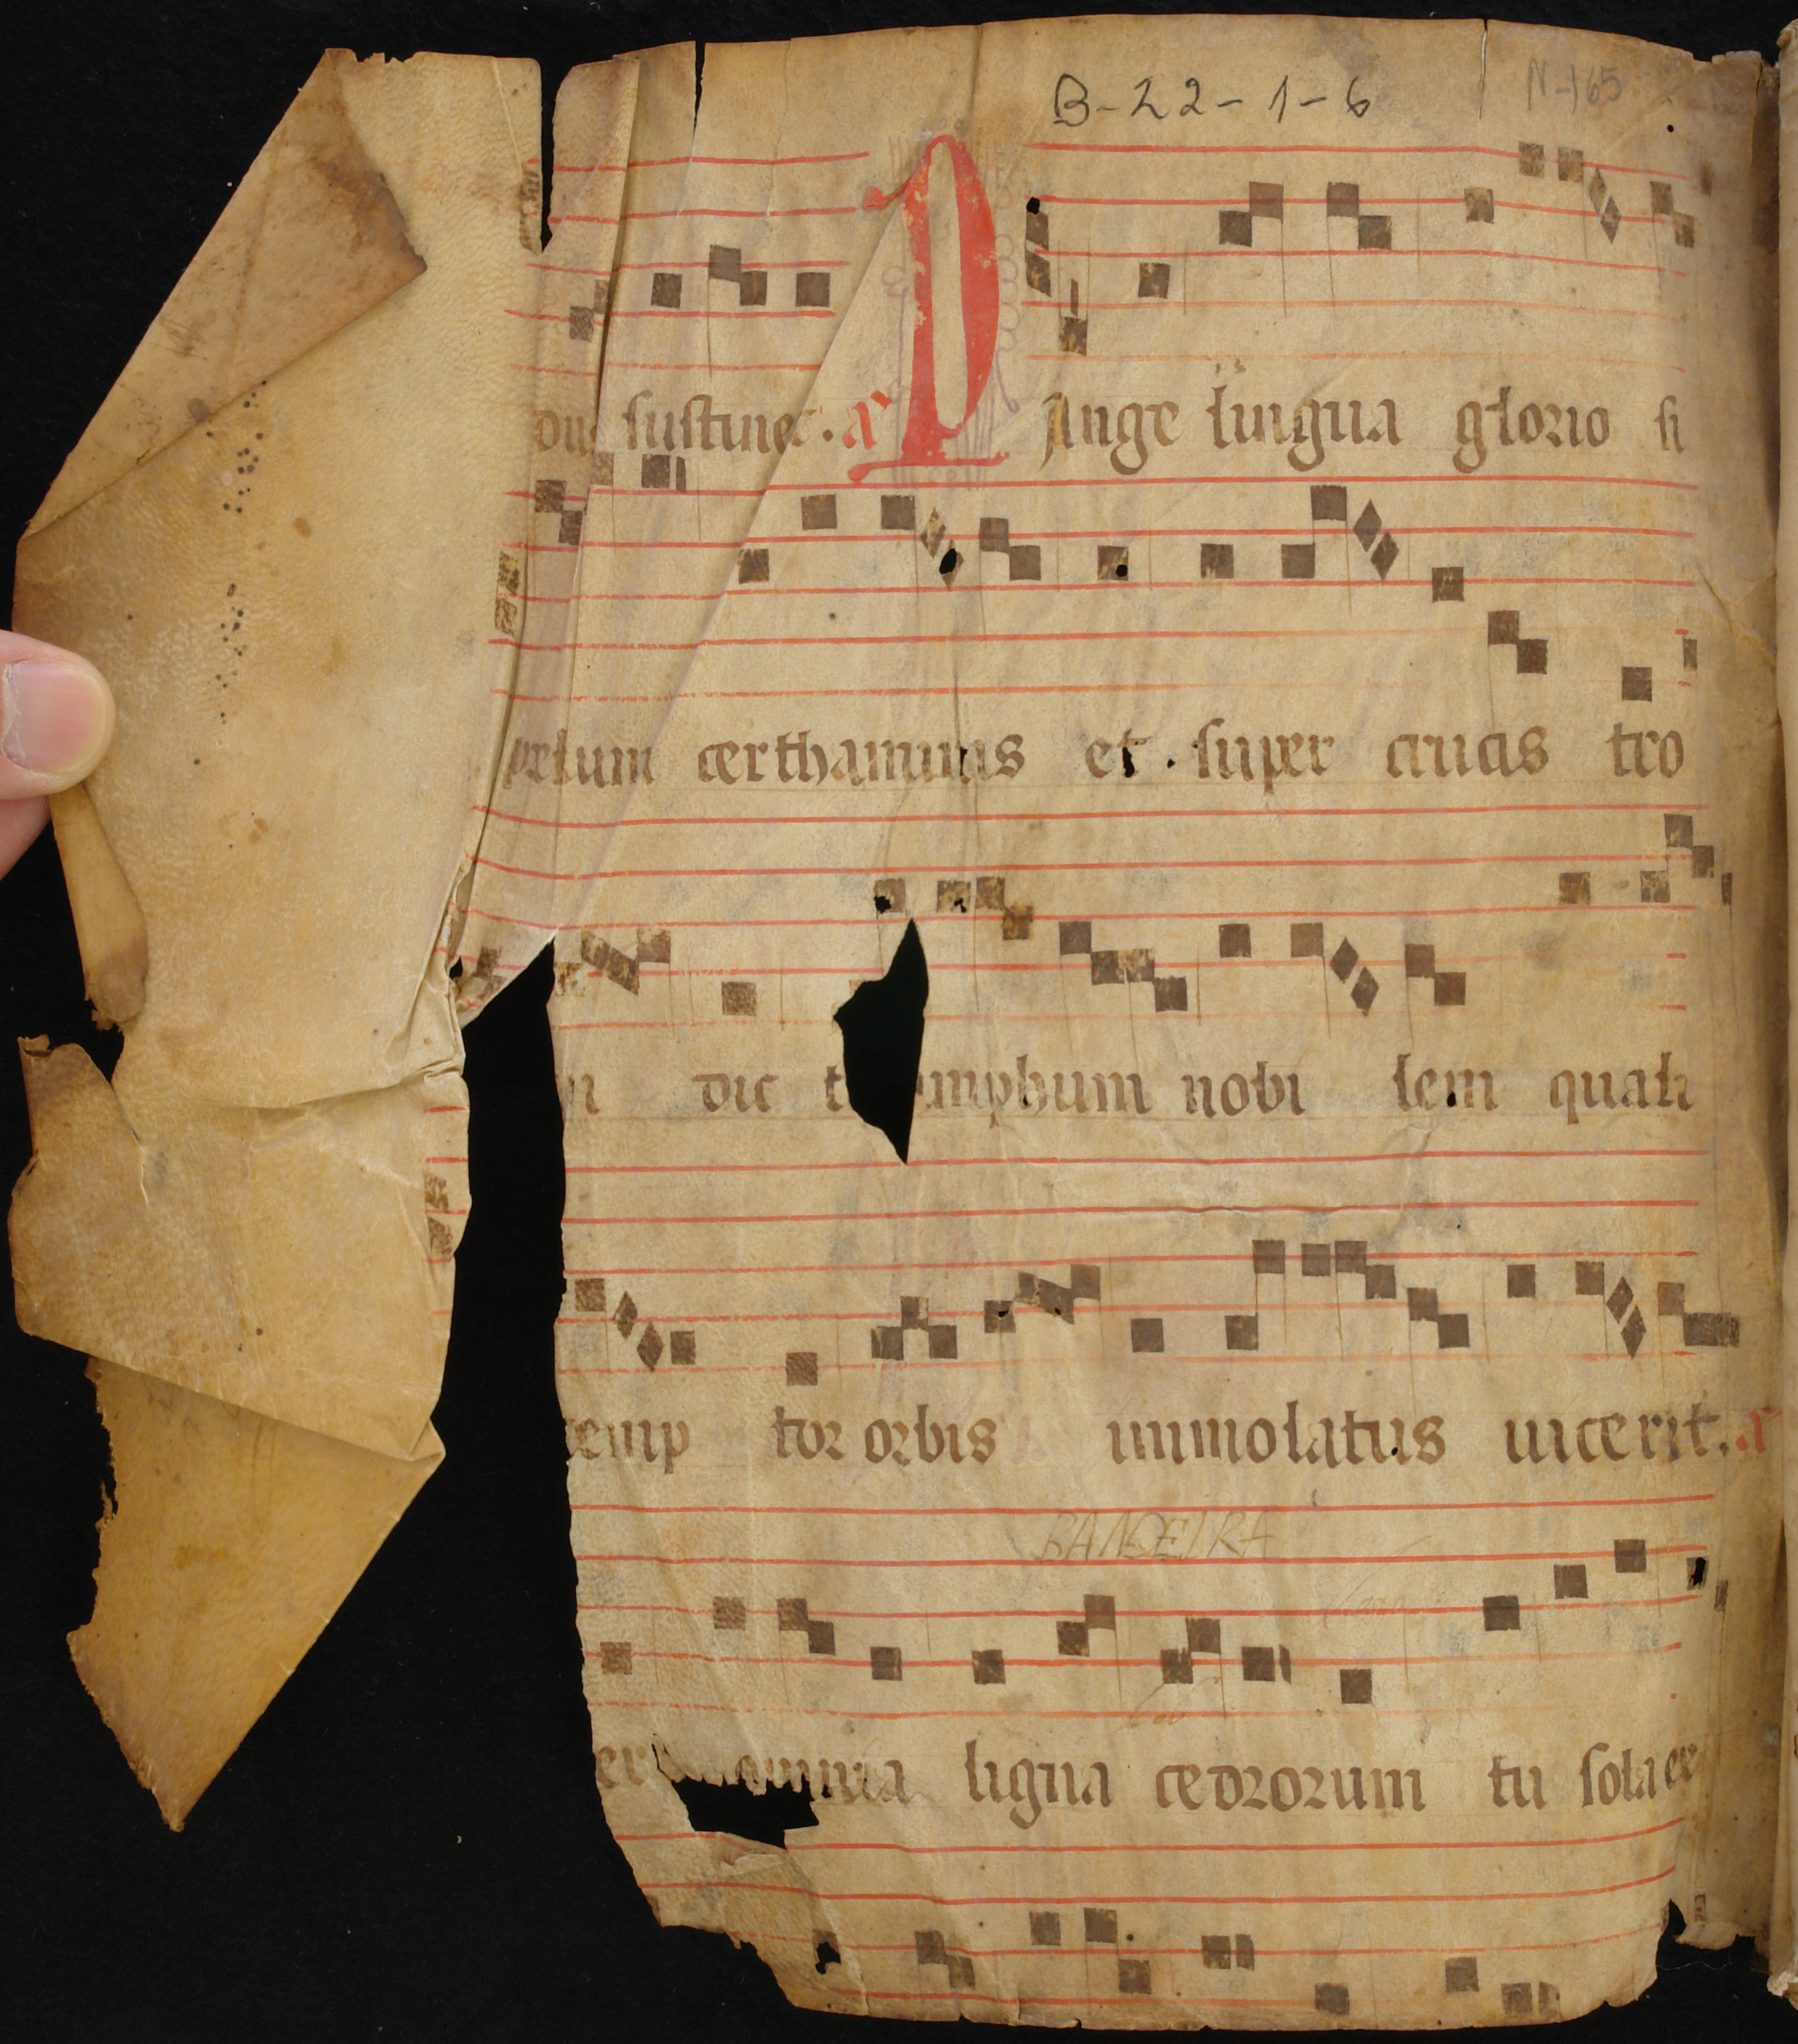 B-22-1-6 N-165
sustinet. a PAnge lingua glorio si
prelium certhaminis et super crucis tro
dic t umphum nobi lem quali
demp tor orbis immolatus uicerit. a
BANDEIRA
er omnia ligna cedrorum tu sola ex